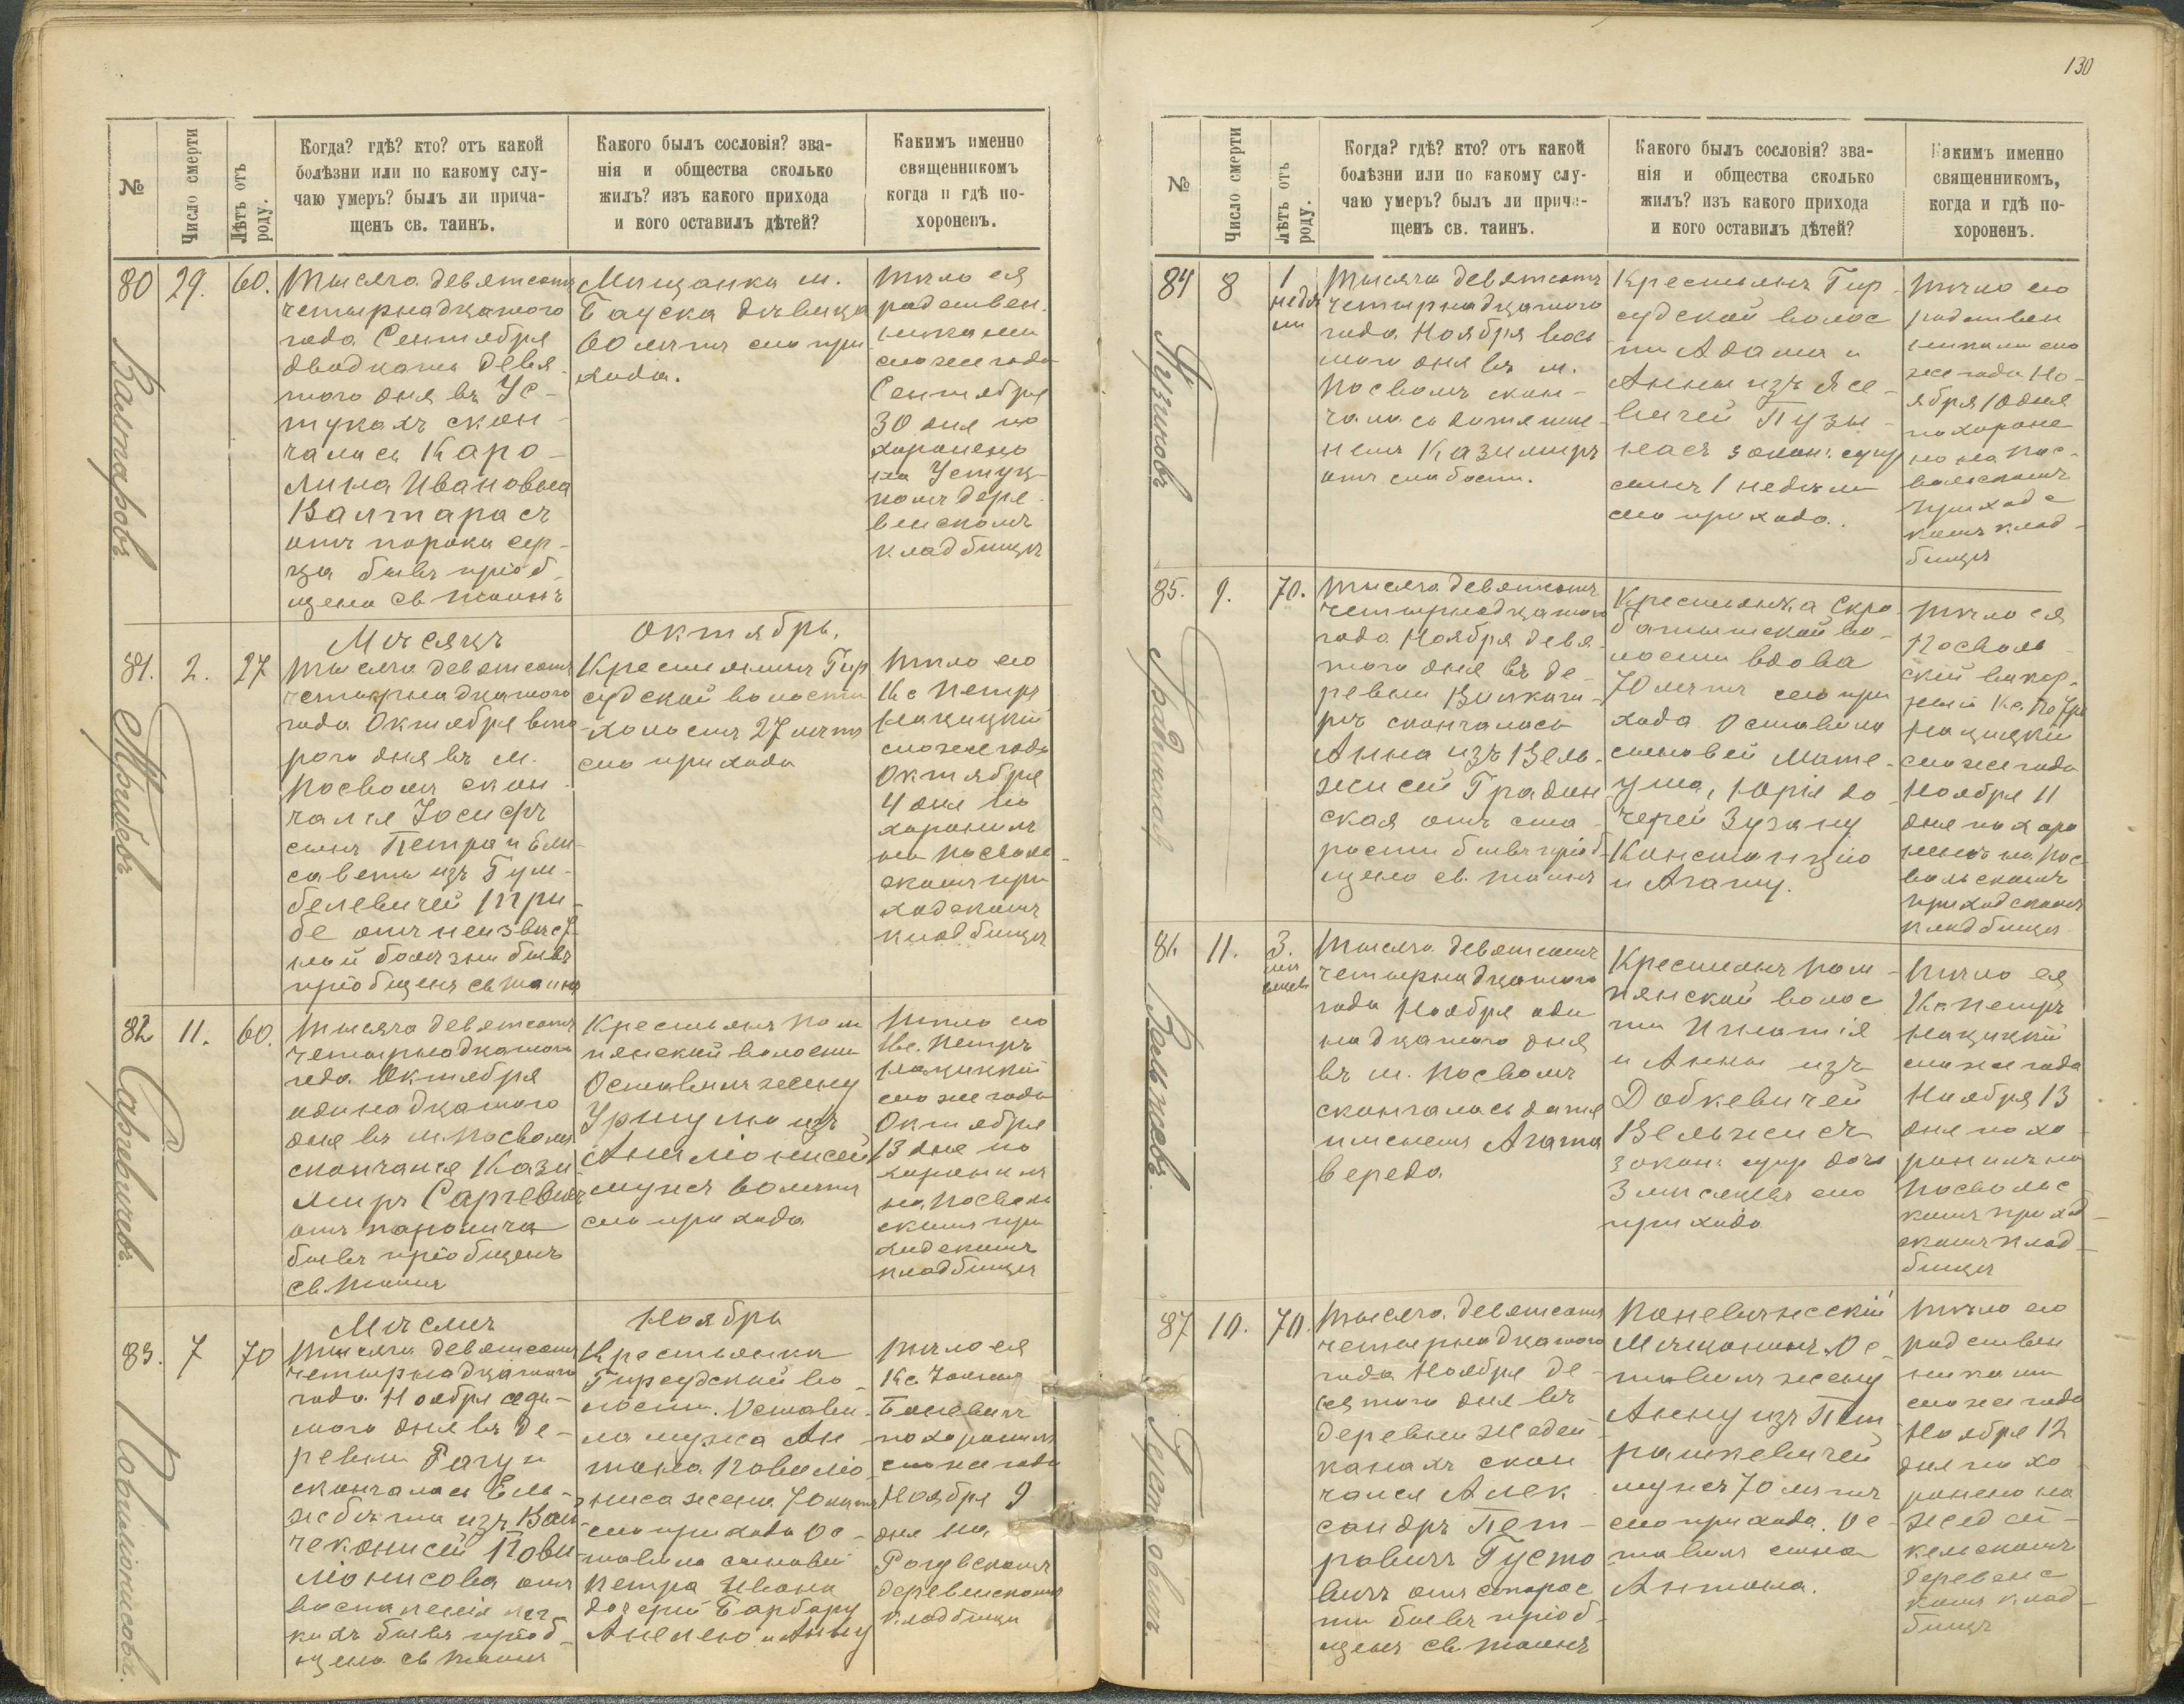 130
№
Число смерти
Лѣтъ отъ
роду.
Когда? гдѣ? кто? отъ какой
болѣзни или по какому слу-
чаю умеръ? былъ ли прича-
щенъ св. таинъ.
Какого былъ сословія? зва-
нія и общества сколько
жилъ? изъ какого прихода
и кого оставилъ дѣтей?
Какимъ именно
священникомъ
когда и гдѣ по-
хороненъ.
80
Валтаровъ.
29.
60.
Тысяча девятсотъ
четырнадцатого
года Сентября
двадцать девя-
того дня въ Ус-
тукахъ скон-
чалась Каро-
лина Ивановна
Валтарасъ
отъ порока сер-
ца бывъ пріоб-
щена св таинъ
Мѣщанка м.
Бауска дѣвица
60 лѣтъ сего при
хода.
тѣло ея
родствен-
никами
сегоже года
Сентября
30 дня по
хоронено
на Устук-
комъ дере-
венскомъ
кладбищѣ
Мѣсяцъ
Октябрь.
81.
Трибевъ.
2.
27
Тысяча девятсотъ
четырнадцатого
года Октября вто
рого дня въ м.
Посволъ скон-
чался Іосифъ
сынъ Петра и Ели-
саветы изъ Гум-
белевичей Три-
бе отъ неизвѣст
ной болѣзни бывъ
пріобщенъ св таинъ
Крестьянинъ Гир
судской волости
холостъ 27 лѣтъ
сего прихода
тѣло его
Кс Петръ
сегоже года
Октября
4 дня по
хоронилъ
на Посволь-
скомъ при
ходскомъ
кладбищѣ
82
Саргевичевъ.
11.
60.
Тысяча девятсотъ
четырнадцатого
года Октября
одинадцатого
дня въ м. Посволъ
скончался Кази
миръ Саргевичъ
отъ паролича
бывъ пріобщенъ
св. таинъ
Крестьянъ Пом
пянской волости
Оставилъ жену
Уршулю изъ
мужъ 60 лѣтъ
сего прихода
тѣло его
Кс. Петръ
сегоже года
Октября
13 дня по
хоронилъ
на Посволь
скомъ при
ходскомъ
кладбищѣ
Мѣсяцъ
Ноябрь
83.
Повиліонисовъ.
7
70
Тысяча девятсотъ
четырнадцатого
года Ноября седь-
мого дня въ де-
ревни Рагуи
скончалась Ель-
жбѣта изъ Вай
чеконисей Пови
ліонисова отъ
воспаленія лег
кихъ бывъ пріоб-
щена св таинъ
Крестьянка
Гирсудской во-
лости. Остави-
ла мужа Ан
тона Повиліо
ниса жена 70 лѣтъ
сего прихода Ос-
тавила сыновей
Петра Ивана
дочерей Барбару
Анелею и Анну
тѣло ея
похоронилъ
сегоже года
Ноября 9
дня на
Рагувскомъ
деревенскомъ
кладбищѣ
№
Число смерти
Лѣтъ отъ
роду.
Когда? гдѣ? кто? отъ какой
болѣзни или по какому слу-
чаю умеръ? былъ ли прича-
щенъ св. таинъ.
Какого былъ сословія? зва-
нія и общества сколько
жилъ? изъ какого прихода
и кого оставилъ дѣтей?
Какимъ именно
священникомъ,
когда и гдѣ по-
хороненъ.
84
Пузиновъ
8
1
недѣ
ли
Тысяча девятсотъ
четырнадцатого
года Ноября вось
мого дня въ м.
Посволъ скон-
чалось дитя име
немъ Казимиръ
отъ слабости.
Крестьянъ Гир
судской волос
ти Адама и
Анны изъ Ясе-
вичей Пузы-
насъ закон. суп
сынъ 1 недѣли
сего прихода.
тѣло его
родствен
никами сего
же года Но-
ября 10 дня
похороне
но на Пос-
вольскомъ
приходс
комъ клад-
бищѣ
85.
Градинская
9.
70.
Тысяча девятсотъ
четырнадцатого
года Ноября девя
того дня въ де-
ревни Вилкаги-
рѣ скончалась
Анна изъ Вель-
жисей Градин
ская отъ ста-
рости бывъ пріоб-
щена св. таинъ
Крестьянка Скро
батышской во-
лости вдова
70 лѣтъ сего при
хода Оставила
сыновей Мате-
уша, Юрія до
черей Зузану
Констанцію
и Агату.
тѣло ея
Посволь
скій викар-
ный Кс. Петръ
сегоже года
Ноября 11
дня похоро
нилъ на Пос-
вольскомъ
приходскомъ
кладбищѣ
86.
Вельжевъ.
11.
3.
мѣ
сяцевъ
Тысяча девятсотъ
четырнадцатого
года Ноября оди
надцатого дня
въ м. Посволъ
скончалась дитя
именемъ Агата
вереда.
Крестьянъ Пом-
пянской волос
ти Игнатія
и Анны изъ
Добкевичей
Вельжисъ
закон. суп дочь
3 мѣсяцевъ сего
прихода
тѣло ея
Кс Петръ
сегоже года
Ноября 13
дня похо
ронилъ на
Посвольс
комъ приход-
скомъ клад-
бищѣ
87
Густовичъ.
10.
70.
Тысяча девятсотъ
четырнадцатого
года Ноября де-
сятого дня въ
деревни Жедей
канахъ скон
чался Алек
сандръ Пет-
ровичъ Густо
вичъ отъ старос
ти бывъ пріоб-
щенъ св таинъ
Поневѣжскій
Мѣщанинъ. Ос-
тавилъ жену
Анну изъ Пет
рашкевичей
мужъ 70 лѣтъ
сего прихода. Ос-
тавилъ сына
Антона.
тѣло его
родствен
никами
сегоже года
Ноября 12
дня похо
ронено на
Жедей-
деревенс
комъ клад-
бищѣ